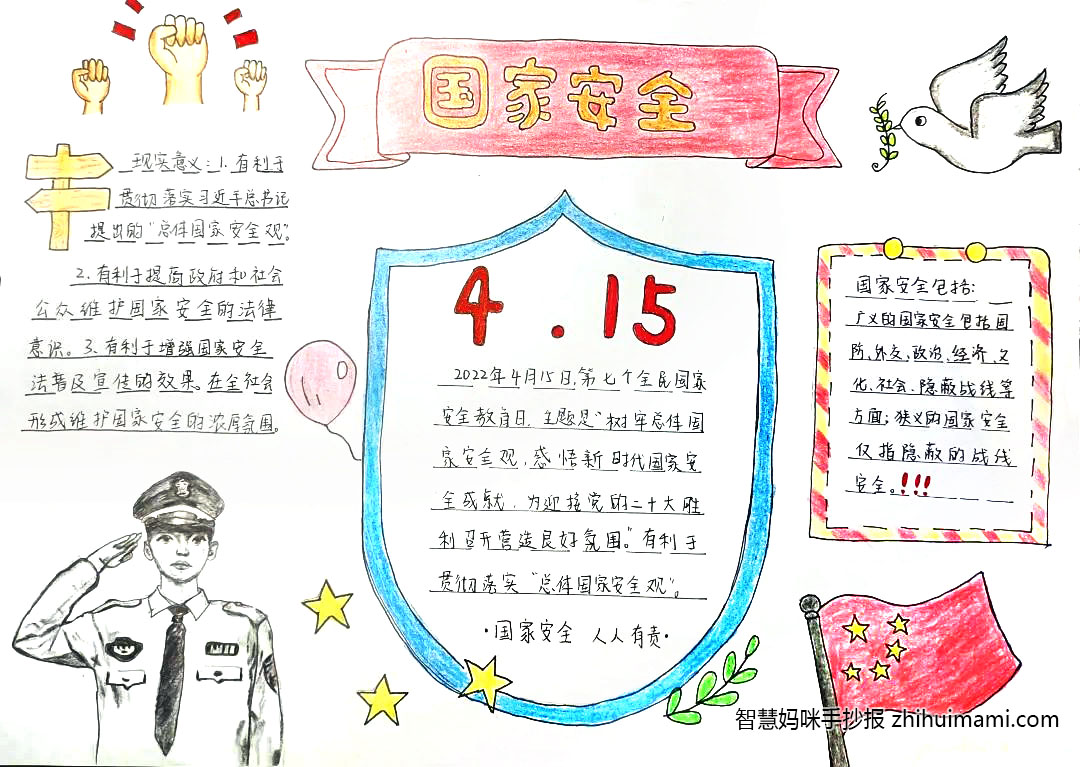 国家安全
现实意义:1.有利于
贯彻落实习近平总书记
提出的“总体国家安全观”。
2.有利于提高政府和社会
公众维护国家安全的法律
意识。3.有利于增强国家安全
法普及宣传的效果。在全社会
形成维护国家安全的浓厚氛围。
4.15
2022年4月15日,第七个全民国家
安全教育日,主题是“树牢总体国
家安全观,感悟新时代国家安
全成就,为迎接党的二十大胜
利召开营造良好氛围。”有利于
贯彻落实“总体国家安全观”。
·国家安全 人人有责·
国家安全包括:
广义的国家安全包括国
防、外交、政治、经济、文
化、社会、隐蔽战线等
方面;狭义的国家安全
仅指隐蔽的战线
安全。!!!
智慧妈咪手抄报 zhihuimami.com